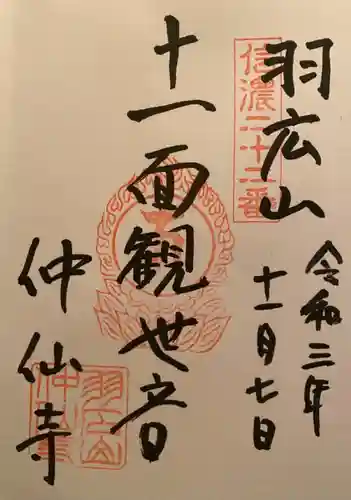 羽広山
信濃二十二番
令和三年
十一月七日
十一面観世音
仲仙寺